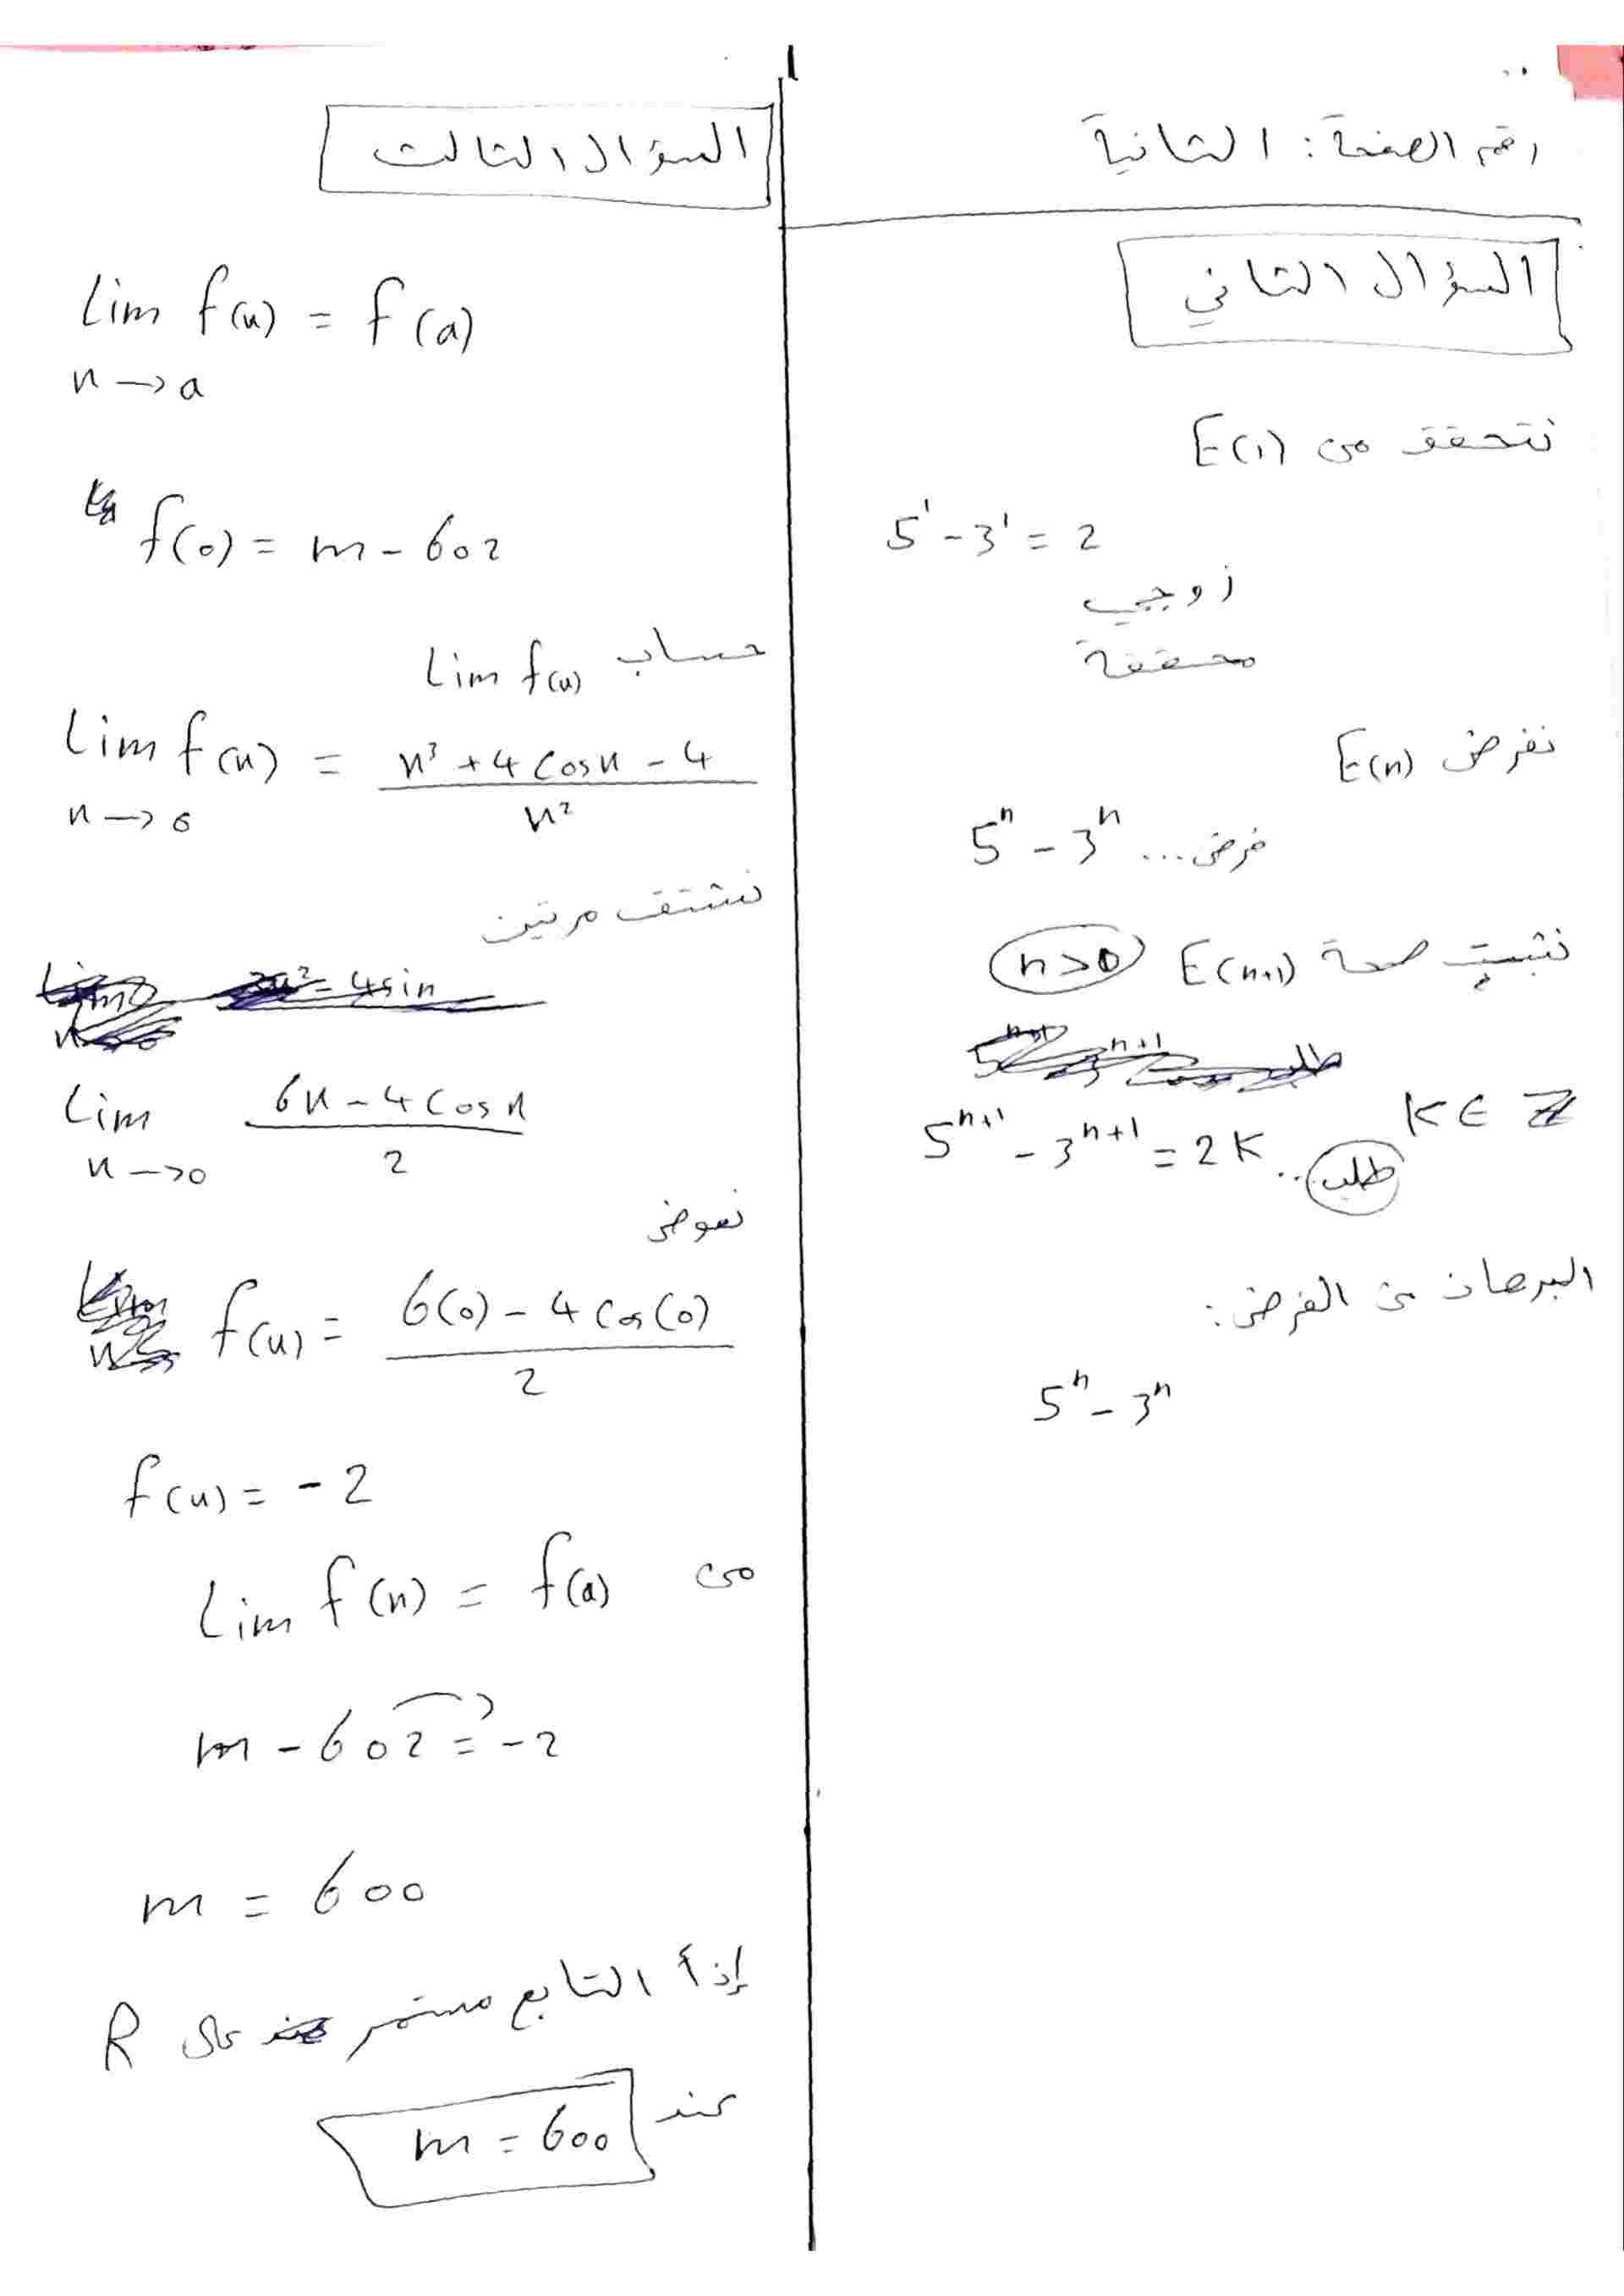 رقم الصفحة: الثانية
السؤال الثاني
نتحقق من E(1)
5¹ - 3¹ = 2
زوجي
محققة
نفرض E(n)
5ⁿ - 3ⁿ ... فرض
نثبت صحة E(n+1) n>0
5ⁿ⁺¹ - 3ⁿ⁺¹ = 2K .. طلب K ∈ Z
البرهان من الفرض:
5ⁿ - 3ⁿ
السؤال الثالث
Lim f(x) = f(a)
x → a
f(0) = m - 602
حساب Lim f(x)
Lim f(x) = x³ + 4 Cos x - 4
x → 0 x²
نشتق مرتين
Lim 6x - 4 Cos x
x → 0 2
نعوض
f(x) = 6(0) - 4 Cos(0)
2
f(x) = - 2
من Lim f(x) = f(a)
m - 602 = -2
m = 600
إذاً التابع مستمر على R
عند m = 600